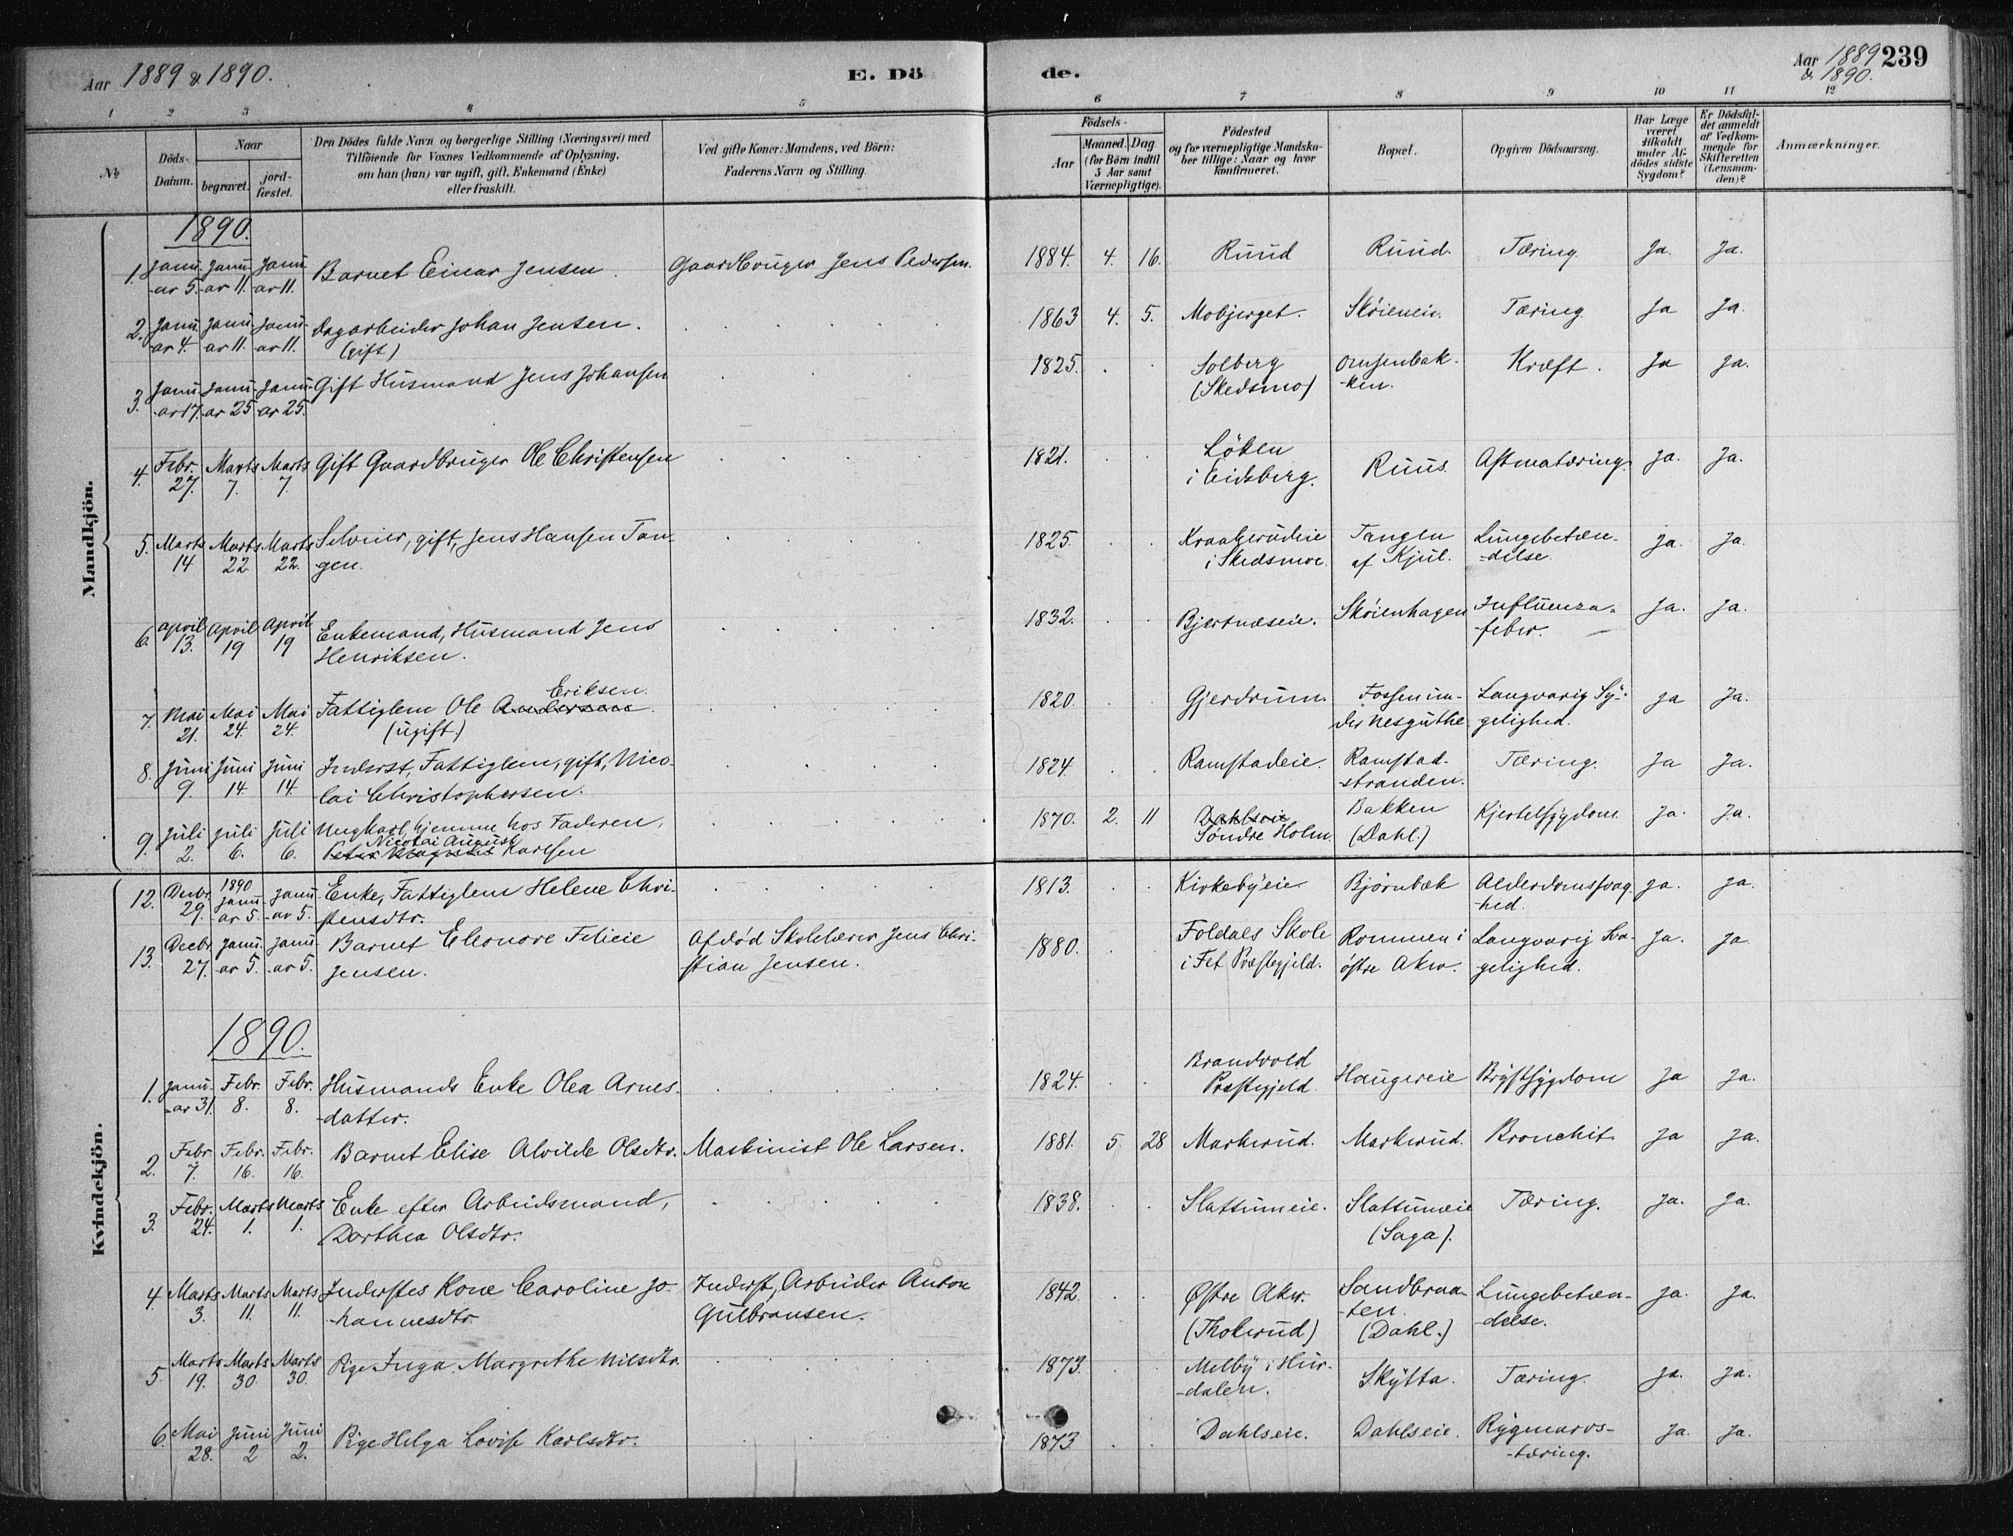 Aar 1889 & 1890.
E. Dö
de.
Aar 1889 & 1890.
239
1 2 3 4 5 6 7 8 9 10 11 12
No
Döds-Datum.
Naar
begravet.
jord-fæstet.
Den Dödes fulde Navn og borgerlige Stilling (Næringsvei) med
Tilföiende for Voxnes Vedkommende af Oplysning,
om han (hun) var ugift, gift, Enkemand (Enke)
eller fraskilt.
Ved gifte Koner: Mandens, ved Börn:
Faderens Navn og Stilling.
Födsels-
Aar
Maaned. Dag.
(for Börn indtil
5 Aar samt
Værnepligtige).
Födested
og for værnepligtige Mandska-
ber tillige: Naar og hvor
konfirmeret.
Bopæl.
Opgiven Dödsaarsag.
Har Læge
været
tilkaldt
under Af-
dödes sidste
Sygdom?
Er Dödsfal-
det anmeldt
af Vedkom-
mende for
Skifteretten
(Lensman-
den)?
Anmærkninger.
Mandkjön.
1890.
1. Janu-ar 5. Janu-ar 11. Janu-ar 11. Barnet Einar Jensen. Gaardbruger Jens Pedersen. 1884. 4. 16. Ruud Ruud. Tæring. Ja. Ja.
2. Janu-ar 4. Janu-ar 11. Janu-ar 11. Dagarbeider Johan Jensen. (gift) 1863 4. 5. Mobjerget. Skøieneie. Tæring Ja Ja.
3. Janu-ar 17. Janu-ar 25 Janu-ar 25. Gift Husmand Jens Johansen 1825. Solberg (Skedsmo) Ornsenbak-ken. Kræft. Ja Ja.
4. Febr. 27. Marts 7. Marts 7. Gift Gaardbruger Ole Christensen 1821. Løken i Eidsberg. Ruus. Astmatæring. Ja. Ja.
5. Marts 14 Marts 22 Marts 22. Selveier, gift, Jens Hansen Tan-gen. 1825. Kraakerudeie i Skedsmoe. Tangen af Kjul. Lungebetæn-delse. Ja. Ja.
6. April 13. April 19 April 19 Enkemand, Husmand Jens Henriksen. 1832. Bjertnæseie. Skøienhagen Influenza-feber. Ja. Ja.
7. Mai 21. Mai 24. Mai 24. Fattiglem Ole Andersen Eriksen. (ugift.) 1820. Gjerdrum. Fossen un-der Nesguthe Langvarig Sy-gelighed. Ja Ja.
8. Juni 9. Juni 14. Juni 14. Inderst, Fattiglem, gift, Nico-lai Christophersen. 1824. Ramstadeie. Ramstad-stranden. Tæring. Ja Ja.
9. Juli 2. Juli 6. Juli 6. Ungkarl, hjemme hos Faderen, Nicolai August Karlsen 1870. 2. 11 Dahlseie Søndre Holm. Bakken (Dahl.) Kjertelsygdom. Ja. Ja.
Kvindekjön.
12. Decbr. 29. 1890 Janu-ar 5. Janu-ar 5. Enke, Fattiglem Helene Chri-stensdtr. 1813. Kirkebyeie Bjørnbæk Alderdomssvag-hed. Ja. Ja.
13. Decbr. 27. Janu-ar 5. Janu-ar 5. Barnet Eleonore Felicie Jensen. Afdød Skolelærer Jens Chri-stian Jensen. 1880. Foldals Skole i Fet Præstegjeld. Rommen i østre Aker. Langvarig Sva-gelighed. Ja. Ja
1890.
1. Janu-ar 31. Febr. 8. Febr. 8. Husmands Enke Olea Arnes-datter. 1824. Brandvold Præstegjeld Haugereie Brystsygdom Ja Ja.
2. Febr. 7. Febr. 16. Febr. 16. Barnet Elise Alvilde Olsdtr. Maskinist Ole Larsen. 1881. 5. 28 Markerud. Markerud. Bronchit Ja Ja.
3. Febr. 24. Marts 1. Marts 1. Enke efter Arbeidsmand, Dorthea Olsdtr. 1838. Slattumeie. Slattumeie (Saga). Tæring. Ja. Ja.
4. Marts 3. Marts 11. Marts 11. Inderstes Kone Caroline Jo-hannesdtr. Inderst, Arbeider Anton Gulbransen. 1842. Østre Aker. (Thokerud) Sandbraa-ten. (Dahl.) Lungebetæn-delse. Ja. Ja.
5. Marts 19. Marts 30 Marts 30. Pige Inga Margrethe Nilsdtr. 1873. Melby i Hur-dalen. Skytta. Tæring. Ja. Ja.
6. Mai 28. Juni 2 Juni 2. Pige Helga Lovise Karlsdtr. 1873 Dahlseie. Dahlseie. Rygmarvs-tæring. Ja. Ja.